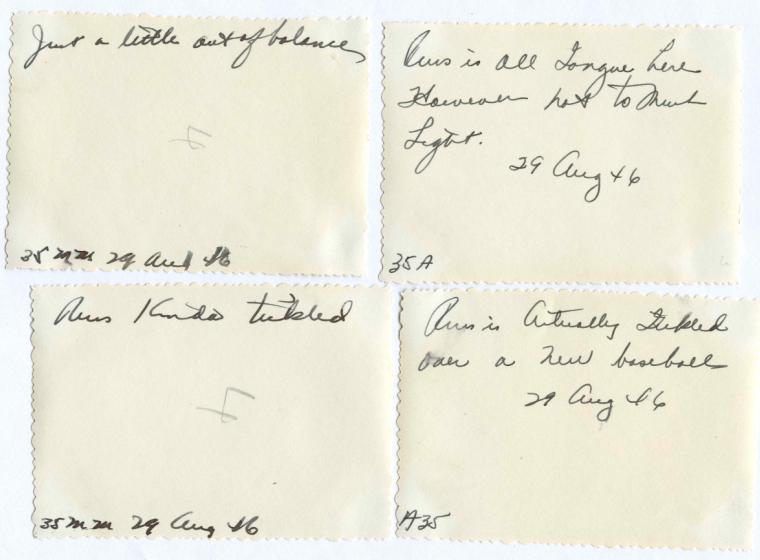 Just a little out of balance
4
35 mm 29 Aug 46
Russ is all Tongue here
However not to Much
Light.
29 Aug 46
35A
Russ Kinda tickled
4
35 mm 29 Aug 46
Russ is Actually Tickled
over a new baseball
29 Aug 46
A35